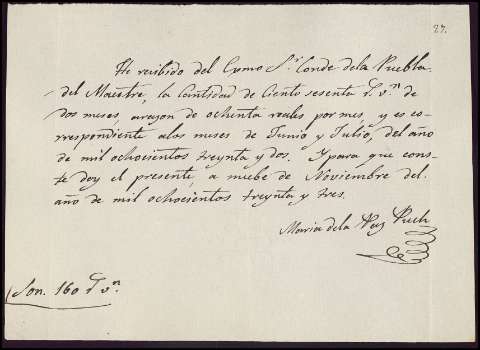 27.
He recibido del Exmo Sr. Conde dela Puebla
del Maestre, la Cantidad de Ciento sesenta rs. vn. de
dos meses, arazon de ochenta reales por mes, y es co-
rrespondiente alos meses de Junio y Julio, del año
de mil ochocientos treynta y dos. Y para que cons-
te doy el presente, a nuebe de Noviembre del
año de mil ochocientos treynta y tres.
Maria dela Paz Puch
Son. 160 rs. vn.